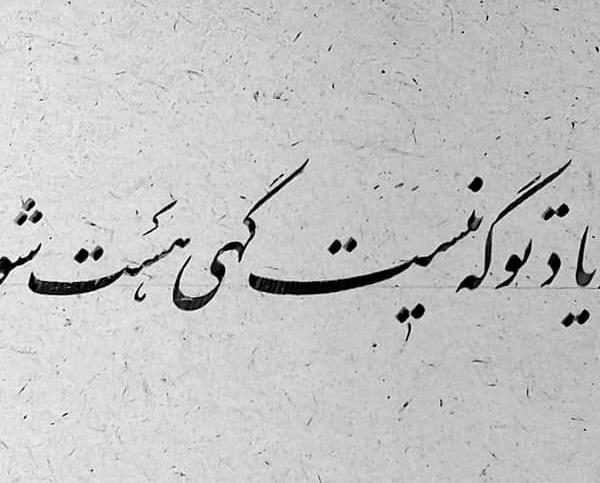 یاد تو گه نیست گهی هست